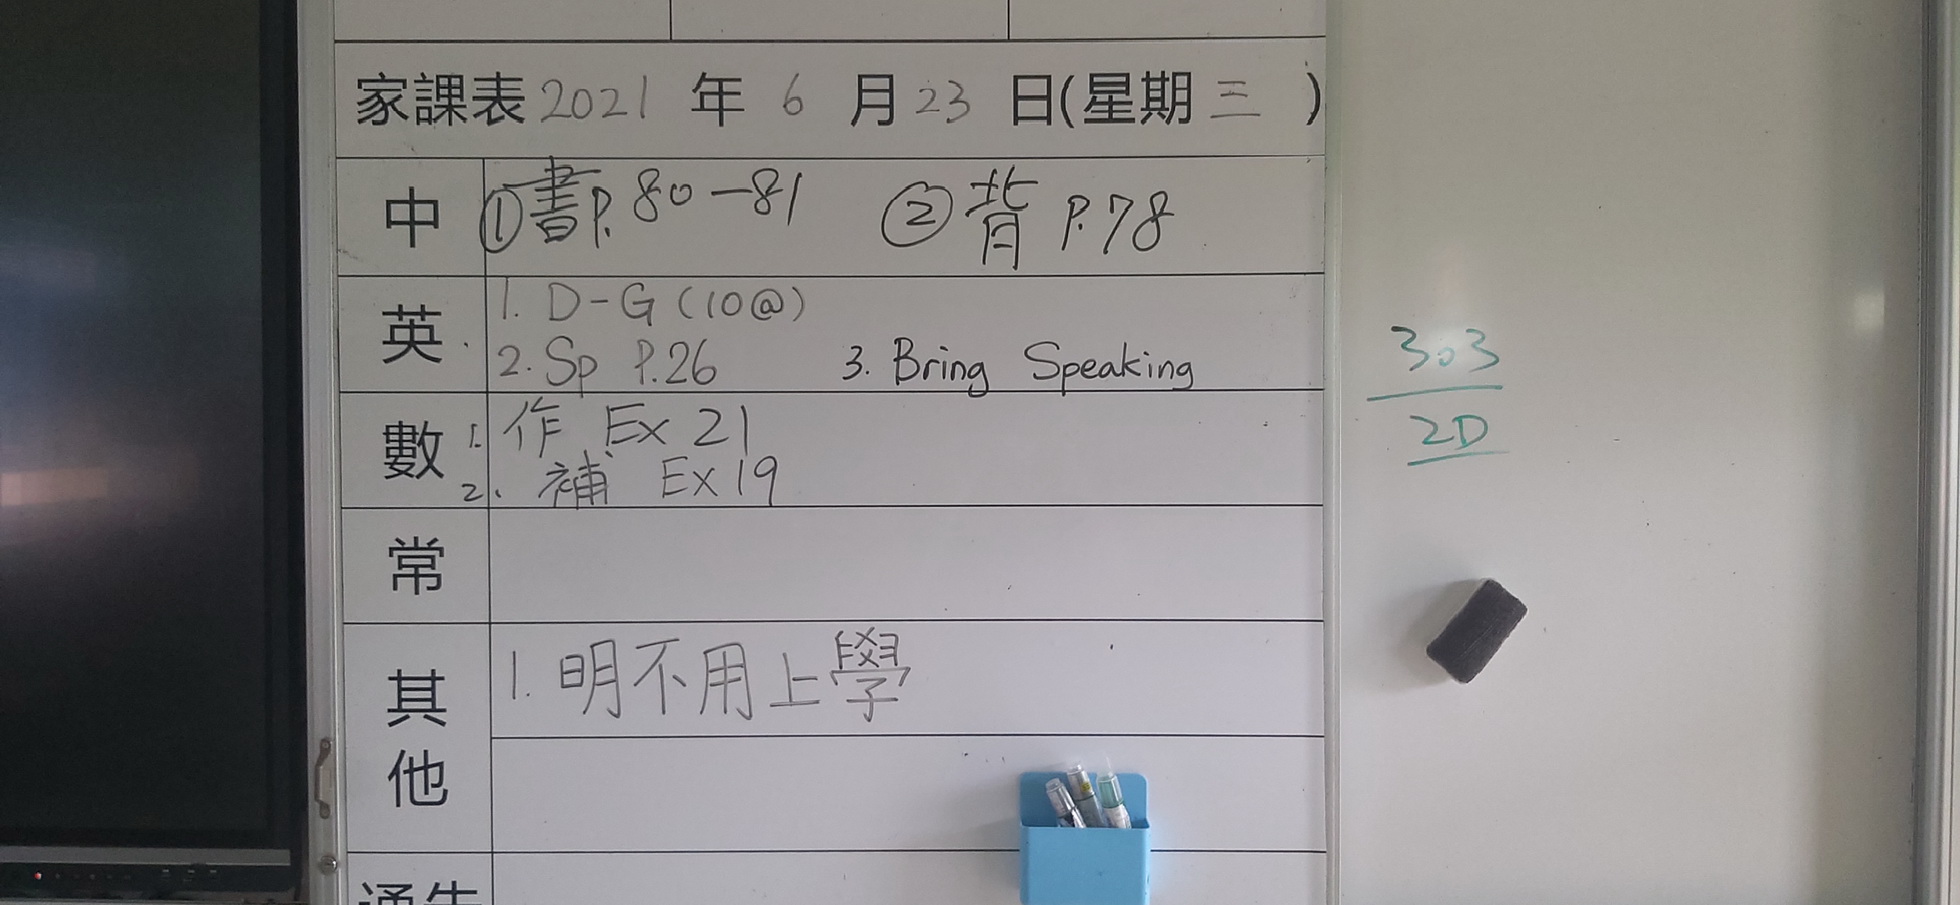 家課表 2021 年 6 月 23 日(星期 三 )
中 ①書P.80-81 ②背 P.78
英 1. D-G (10@)
2. Sp P.26 3. Bring Speaking
數 1. 作 Ex 21
2. 補 Ex 19
常
其他 1. 明不用上學
通告
303
2D